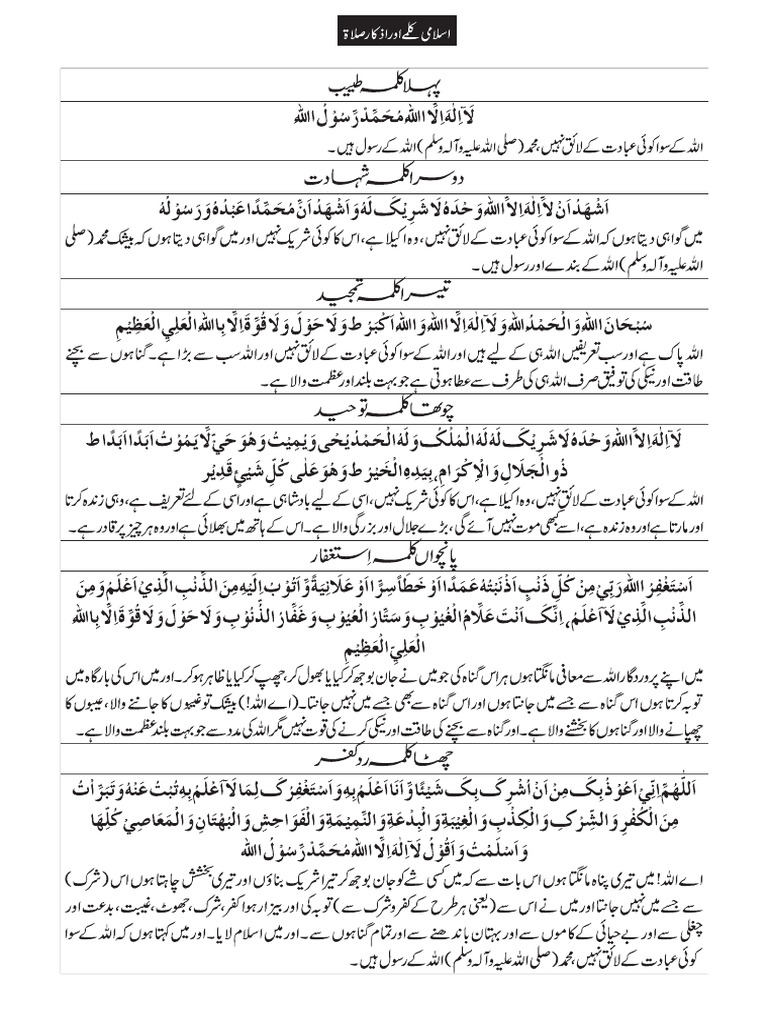 اسلامی کلمے اور اذکار صلاۃ
پہلا کلمہ طیب
لَآ اِلٰهَ اِلَّا اللهُ مُحَمَّدٌ رَّسُوْلُ اللهِ
اللہ کے سوا کوئی عبادت کے لائق نہیں، محمد (صلی اللہ علیہ وآلہ وسلم) اللہ کے رسول ہیں۔
دوسرا کلمہ شہادت
اَشْهَدُ اَنْ لَّآ اِلٰهَ اِلَّا اللهُ وَحْدَهٗ لَا شَرِيْكَ لَهٗ وَاَشْهَدُ اَنَّ مُحَمَّدًا عَبْدُهٗ وَرَسُوْلُهٗ
میں گواہی دیتا ہوں کہ اللہ کے سوا کوئی عبادت کے لائق نہیں، وہ اکیلا ہے، اس کا کوئی شریک نہیں اور میں گواہی دیتا ہوں کہ بیشک محمد (صلی
اللہ علیہ وآلہ وسلم) اللہ کے بندے اور رسول ہیں۔
تیسرا کلمہ تمجید
سُبْحَانَ اللهِ وَالْحَمْدُ لِلّٰهِ وَلَآ اِلٰهَ اِلَّا اللهُ وَاللهُ اَكْبَرُ ط وَلَا حَوْلَ وَلَا قُوَّةَ اِلَّا بِاللهِ الْعَلِيِّ الْعَظِيْمِ
اللہ پاک ہے اور سب تعریفیں اللہ ہی کے لیے ہیں اور اللہ کے سوا کوئی عبادت کے لائق نہیں اور اللہ سب سے بڑا ہے۔ گناہوں سے بچنے
طاقت اور نیکی کی توفیق صرف اللہ ہی کی طرف سے عطا ہوتی ہے جو بہت بلند اور عظمت والا ہے۔
چوتھا کلمہ توحید
لَآ اِلٰهَ اِلَّا اللهُ وَحْدَهٗ لَا شَرِيْكَ لَهٗ لَهُ الْمُلْكُ وَلَهُ الْحَمْدُ يُحْى وَيُمِيْتُ وَهُوَ حَيٌّ لَّا يَمُوْتُ اَبَدًا اَبَدًا ط
ذُو الْجَلَالِ وَالْاِكْرَامِ، بِيَدِهِ الْخَيْرُ ط وَهُوَ عَلٰى كُلِّ شَيْئٍ قَدِيْر
اللہ کے سوا کوئی عبادت کے لائق نہیں، وہ اکیلا ہے، اس کا کوئی شریک نہیں، اسی کے لیے بادشاہی ہے اور اسی کے لئے تعریف ہے، وہی زندہ کرتا
اور مارتا ہے اور وہ زندہ ہے، اسے کبھی موت نہیں آئے گی، بڑے جلال اور بزرگی والا ہے۔ اس کے ہاتھ میں بھلائی ہے اور وہ ہر چیز پر قادر ہے۔
پانچواں کلمہ اِستغفار
اَسْتَغْفِرُ اللهَ رَبِّيْ مِنْ كُلِّ ذَنْبٍ اَذْنَبْتُهٗ عَمَدًا اَوْ خَطَأً سِرًّا اَوْ عَلَانِيَةً وَّاَتُوْبُ اِلَيْهِ مِنَ الذَّنْبِ الَّذِيْ اَعْلَمُ وَمِنَ
الذَّنْبِ الَّذِيْ لَآ اَعْلَمُ، اِنَّكَ اَنْتَ عَلَّامُ الْغُيُوْبِ وَسَتَّارُ الْعُيُوْبِ وَغَفَّارُ الذُّنُوْبِ وَلَا حَوْلَ وَلَا قُوَّةَ اِلَّا بِاللهِ
الْعَلِيِّ الْعَظِيْمِ
میں اپنے پروردگار اللہ سے معافی مانگتا ہوں ہر اس گناہ کی جو میں نے جان بوجھ کر کیا یا بھول کر، چھپ کر کیا یا ظاہر ہو کر۔ اور میں اس کی بارگاہ میں
توبہ کرتا ہوں اس گناہ سے جسے میں جانتا ہوں اور اس گناہ سے بھی جسے میں نہیں جانتا۔ (اے اللہ!) بیشک تو غیبوں کا جاننے والا، عیبوں کا
چھپانے والا اور گناہوں کا بخشنے والا ہے۔ اور گناہ سے بچنے کی طاقت اور نیکی کرنے کی قوت نہیں مگر اللہ کی مدد سے جو بہت بلند عظمت والا ہے۔
چھٹا کلمہ رد کفر
اَللّٰهُمَّ اِنِّيْ اَعُوْذُ بِكَ مِنْ اَنْ اُشْرِكَ بِكَ شَيْئًا وَّاَنَا اَعْلَمُ بِهٖ وَاَسْتَغْفِرُكَ لِمَا لَآ اَعْلَمُ بِهٖ تُبْتُ عَنْهُ وَتَبَرَّأْتُ
مِنَ الْكُفْرِ وَالشِّرْكِ وَالْكِذْبِ وَالْغِيْبَةِ وَالْبِدْعَةِ وَالنَّمِيْمَةِ وَالْفَوَاحِشِ وَالْبُهْتَانِ وَالْمَعَاصِيْ كُلِّهَا
وَاَسْلَمْتُ وَاَقُوْلُ لَآ اِلٰهَ اِلَّا اللهُ مُحَمَّدٌ رَّسُوْلُ اللهِ
اے اللہ! میں تیری پناہ مانگتا ہوں اس بات سے کہ میں کسی شے کو جان بوجھ کر تیرا شریک بناؤں اور تیری بخشش چاہتا ہوں اس (شرک)
سے جسے میں نہیں جانتا اور میں نے اس سے (یعنی ہر طرح کے کفر و شرک سے) توبہ کی اور بیزار ہوا کفر، شرک، جھوٹ، غیبت، بدعت اور
چغلی سے اور بے حیائی کے کاموں سے اور بہتان باندھنے سے اور تمام گناہوں سے۔ اور میں اسلام لایا۔ اور میں کہتا ہوں کہ اللہ کے سوا
کوئی عبادت کے لائق نہیں، محمد (صلی اللہ علیہ وآلہ وسلم) اللہ کے رسول ہیں۔